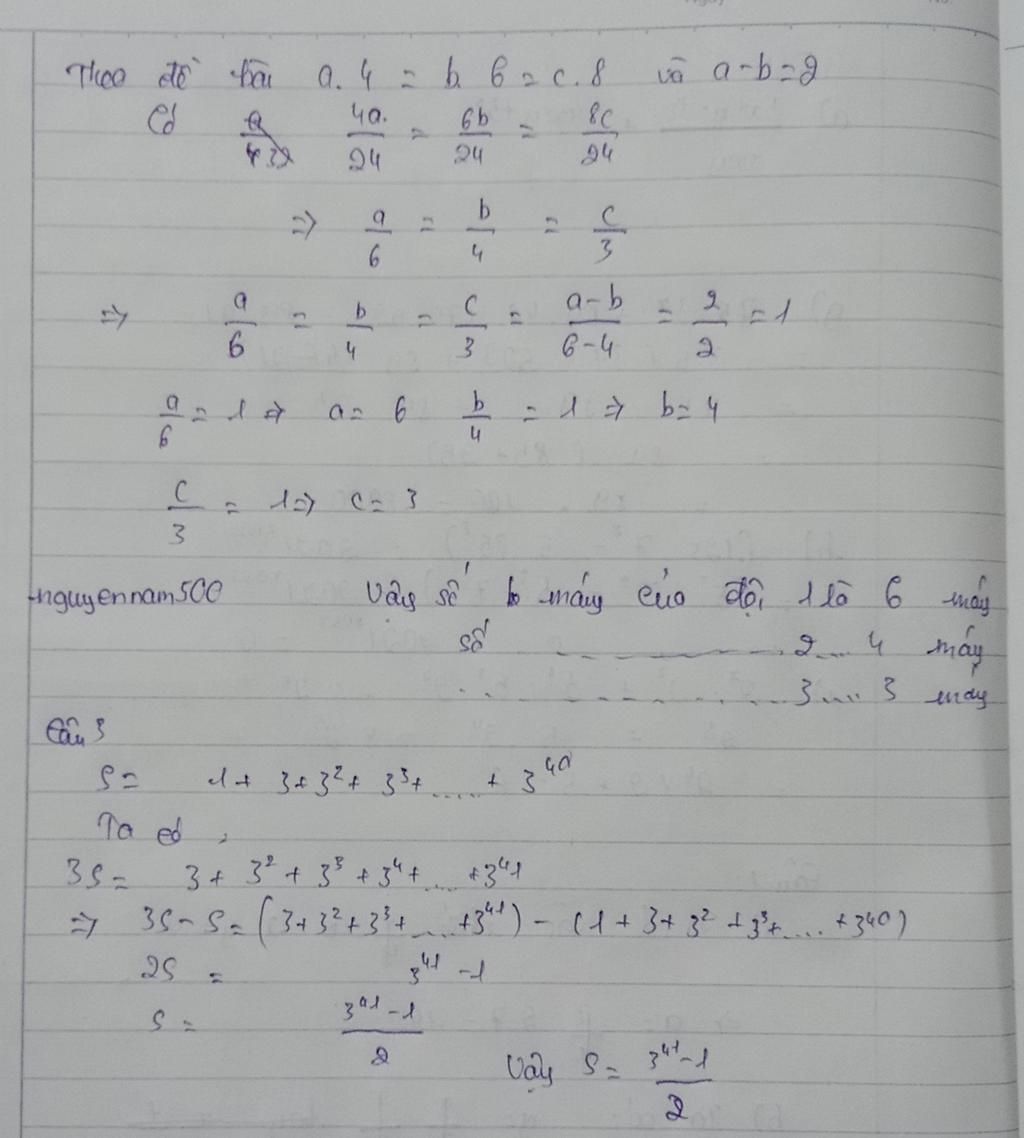 Theo đề bài a. 4 = b. 6 = c. 8 và a-b=2
Có 4a/24 = 6b/24 = 8c/24
=> a/6 = b/4 = c/3
=> a/6 = b/4 = c/3 = a-b/6-4 = 2/2 = 1
a/6 = 1 => a= 6 b/4 = 1 => b= 4
c/3 = 1 => c= 3
nguyennam500
Vậy số máy của đội 1 là 6 máy
số ............ 2.... 4 máy
............ 3.... 3 máy
Câu 3
S= 1+ 3+3²+ 3³+.....+ 3⁴⁰
Ta có,
3S= 3+ 3²+ 3³+3⁴+....+3⁴¹
=> 3S-S=(3+3²+3³+....+3⁴¹) - (1+3+3²+3³+....+3⁴⁰)
2S = 3⁴¹-1
S= 3⁴¹-1/2
Vậy S= 3⁴¹-1/2